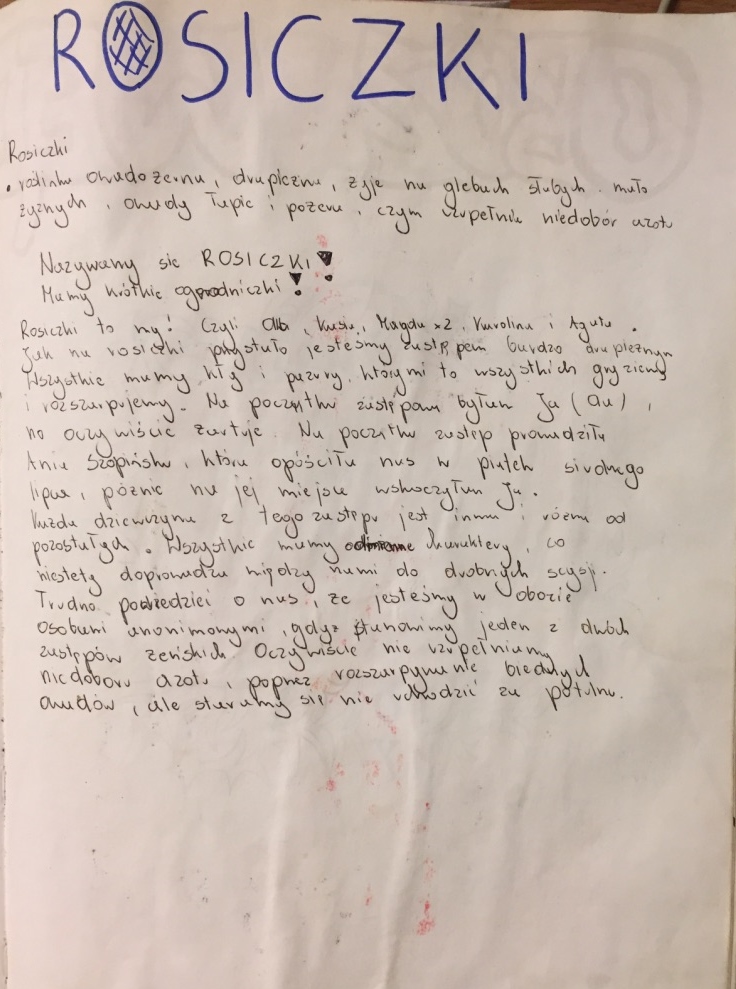 ROSICZKI
Rosiczki
• roślinka owadożerna, drapieżna, żyje na glebach słabych mało
żyznych, owady łapie i pożera, czym uzupełnia niedobór azotu
Nazywamy się ROSICZKI!
Mamy krótkie ogrodniczki!
Rosiczki to my! Czyli Ola, Kasia, Magda x2, Karolina i Agata.
Jak na rosiczki przystało jesteśmy zastępem bardzo drapieżnym
Wszystkie mamy kły i pazury, którymi to wszystkich gryziemy
i rozszarpujemy. Na początku zastępam byłam Ja (au),
no oczywiście żartuję. Na początku zastęp prowadziła
Ania Szopińska, która opóściła nas w piątek siódmego
lipca, póznie na jej miejsce wskoczyłam Ja.
Każda dziewczyna z tego zastępu jest inna i różna od
pozostałych. Wszystkie mamy odmienne charaktery, co
niestety doprowadza między nami do drobnych scysji.
Trudno powiedzieć o nas, że jesteśmy w obozie
osobami anonimowymi, gdyż stanowimy jeden z dwóch
zastępów żeńskich. Oczywiście nie uzupełniamy
niedoboru azotu, poprzez rozszarpywanie biednych
owadów, ale staramy się nie uchodzić za potulne.